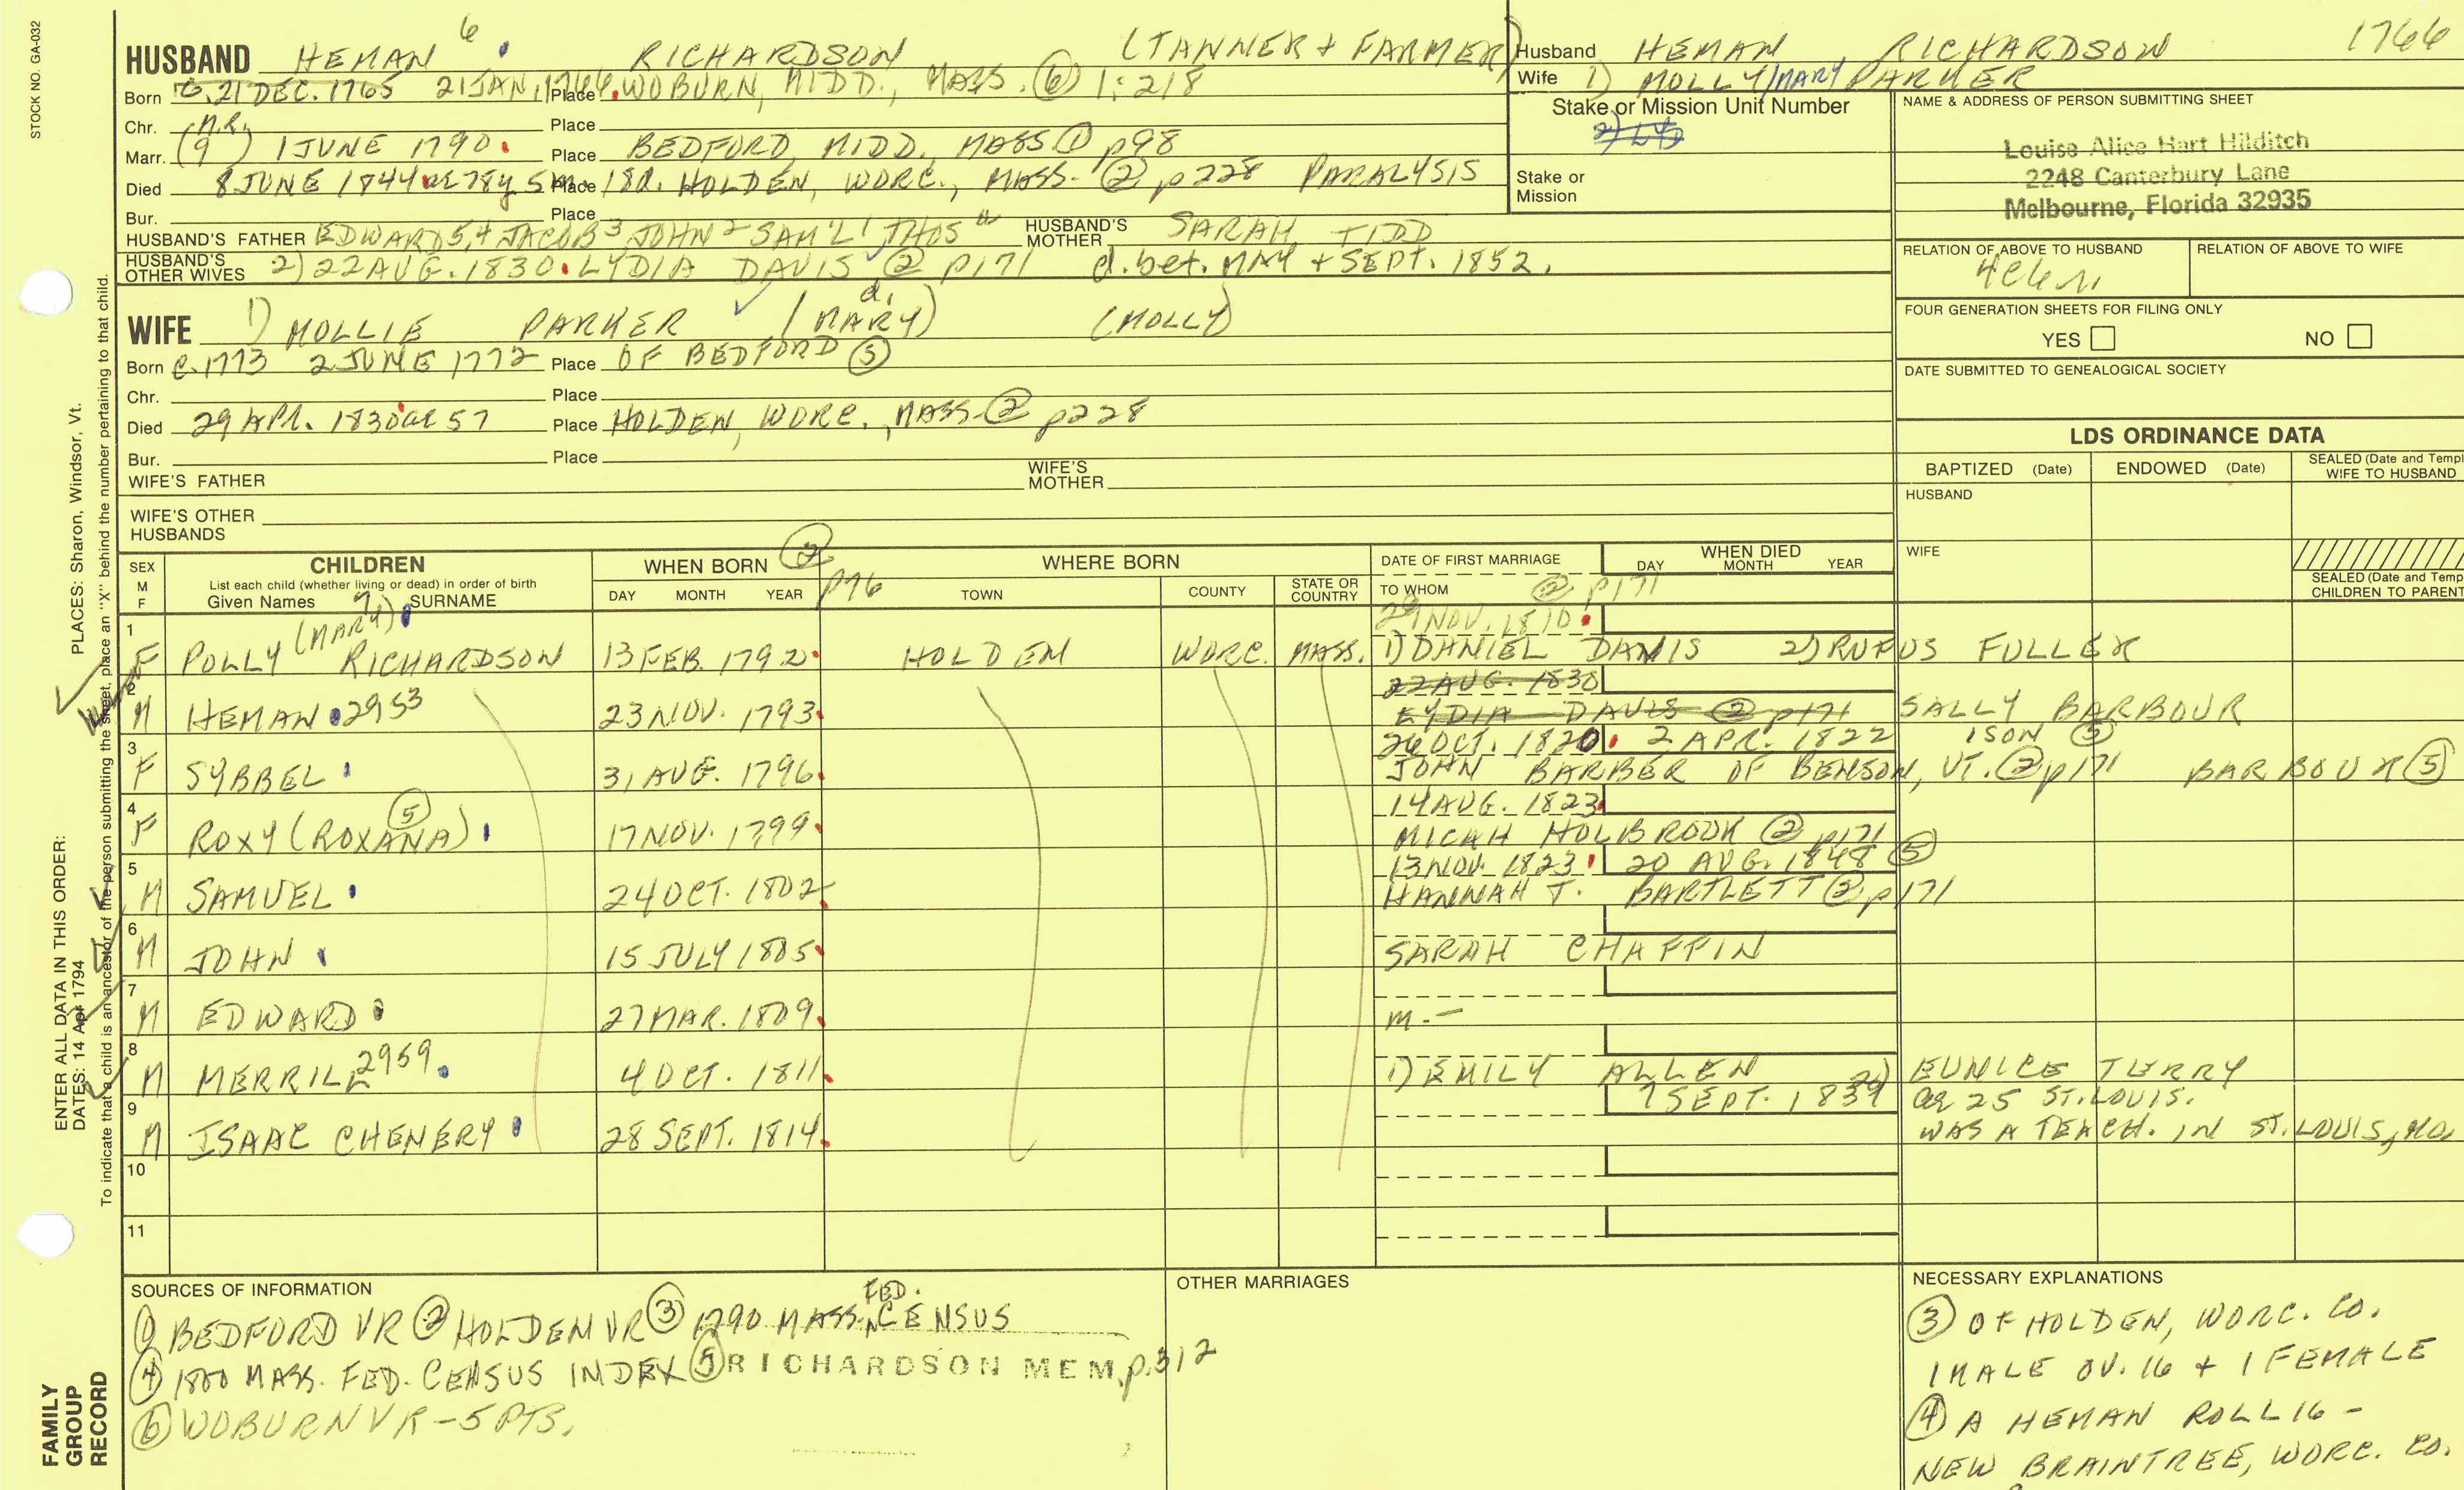 STOCK NO. GA-032
HUSBAND HEMAN 6 RICHARDSON (TANNER + FARMER)
Born c. 21 DEC. 1765 21 JAN. 1766 Place WOBURN, MIDD., MASS. (6) 1:218
Chr. (M.R. Place
Marr. (9 ) 1 JUNE 1790 Place BEDFORD, MIDD., MASS (1) p98
Died 8 JUNE 1844 ae 78y 5m 18d. Place HOLDEN, WORC., MASS. (2) p228 PARALYSIS
Bur. Place
HUSBAND'S FATHER EDWARD 5,4 JACOB 3 JOHN 2 SAM'L 1 THOS HUSBAND'S MOTHER SARAH TIDD
HUSBAND'S OTHER WIVES 2) 22 AUG. 1830 LYDIA DAVIS (2) p171 d. bet. MAY + SEPT. 1852.
Husband HEMAN RICHARDSON 1766
Wife 1) MOLLY/MARY PARKER
Stake or Mission Unit Number
Stake or Mission
NAME & ADDRESS OF PERSON SUBMITTING SHEET
Louise Alice Hart Hilditch
2248 Canterbury Lane
Melbourne, Florida 32935
RELATION OF ABOVE TO HUSBAND RELATION OF ABOVE TO WIFE
4C6R
FOUR GENERATION SHEETS FOR FILING ONLY
YES NO
DATE SUBMITTED TO GENEALOGICAL SOCIETY
WIFE 1) MOLLIE PARKER (MARY) d. (MOLLY)
Born c. 1773 2 JUNE 1772 Place OF BEDFORD (5)
Chr. Place
Died 29 APR. 1830 ae 57 Place HOLDEN, WORC., MASS. (2) p228
Bur. Place
WIFE'S FATHER WIFE'S MOTHER
WIFE'S OTHER HUSBANDS
LDS ORDINANCE DATA
BAPTIZED (Date) ENDOWED (Date) SEALED (Date and Templ
WIFE TO HUSBAND
HUSBAND
WIFE
SEALED (Date and Temp
CHILDREN TO PARENT
SEX M F CHILDREN WHEN BORN (2) p76 WHERE BORN DATE OF FIRST MARRIAGE WHEN DIED
List each child (whether living or dead) in order of birth
Given Names SURNAME DAY MONTH YEAR TOWN COUNTY STATE OR COUNTRY TO WHOM (2) p171 DAY MONTH YEAR
29 NOV. 1810
1 F POLLY (MARY) RICHARDSON 13 FEB. 1792 HOLDEN WORC. MASS. 1) DANIEL DAVIS 2) RUFUS FULLER
22 AUG. 1830
2 M HEMAN 2953 23 NOV. 1793 LYDIA DAVIS (2) p171 SALLY BARBOUR
26 OCT. 1820 2 APR. 1822 ISON (5)
3 F SYBBEL 31 AUG. 1796 JOHN BARBER OF BENSON, VT. (2) p171 BARBOUR (5)
14 AUG. 1823
4 F ROXY (ROXANA) (5) 17 NOV. 1799 MICAH HOLBROOK (2) p171
13 NOV. 1823 20 AUG. 1848 (5)
5 M SAMUEL 24 OCT. 1802 HANNAH T. BARTLETT (2) p171
6 M JOHN 15 JULY 1805 SARAH CHAFFIN
7 M EDWARD 27 MAR. 1809 m. —
8 M MERRILL 2959 4 OCT. 1811 1) EMILY ALLEN 2) EUNICE TERRY
7 SEPT. 1839 ae 25 ST. LOUIS.
9 M ISAAC CHENERY 28 SEPT. 1814 WAS A TEACH. IN ST. LOUIS, MO.
10
11
SOURCES OF INFORMATION
(1) BEDFORD VR (2) HOLDEN VR (3) 1790 MASS. FED. CENSUS
(4) 1800 MASS. FED. CENSUS INDEX (5) RICHARDSON MEM. p.312
(6) WOBURN VR - 5 PTS.
OTHER MARRIAGES
NECESSARY EXPLANATIONS
(3) OF HOLDEN, WORC. CO.
1 MALE OV. 16 + 1 FEMALE
(4) A HEMAN ROLL 16 -
NEW BRAINTREE, WORC. CO.
PLACES: Sharon, Windsor, Vt.
To indicate that a child is an ancestor of the person submitting the sheet, place an "X" behind the number pertaining to that child.
ENTER ALL DATA IN THIS ORDER:
DATES: 14 Apr 1794
FAMILY GROUP RECORD